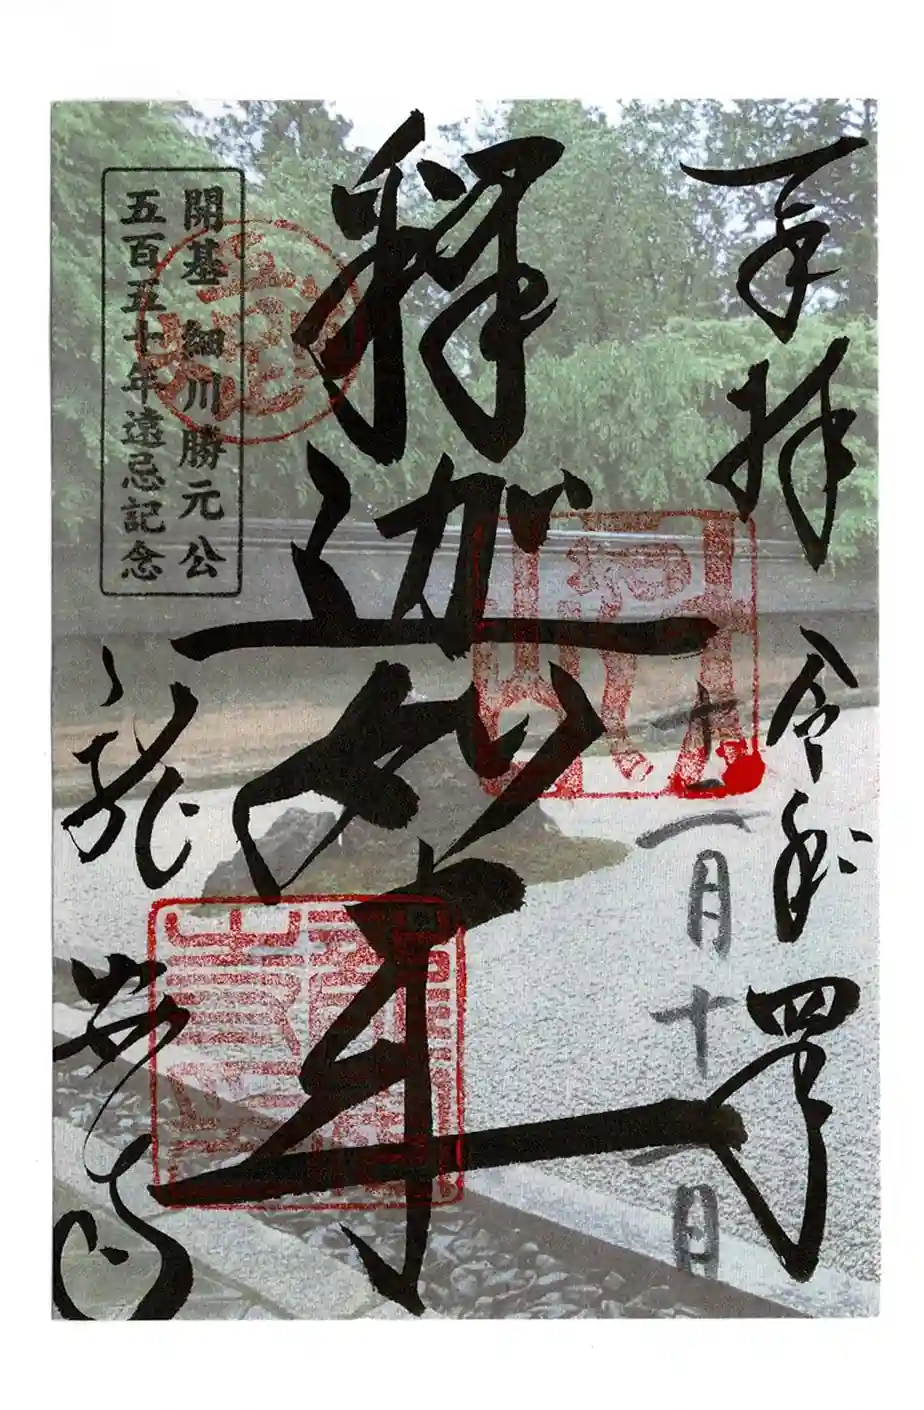 奉拝
令和四年
十二月十二日
釋迦如来
開基 細川勝元公
五百五十年遠忌記念
龍安寺